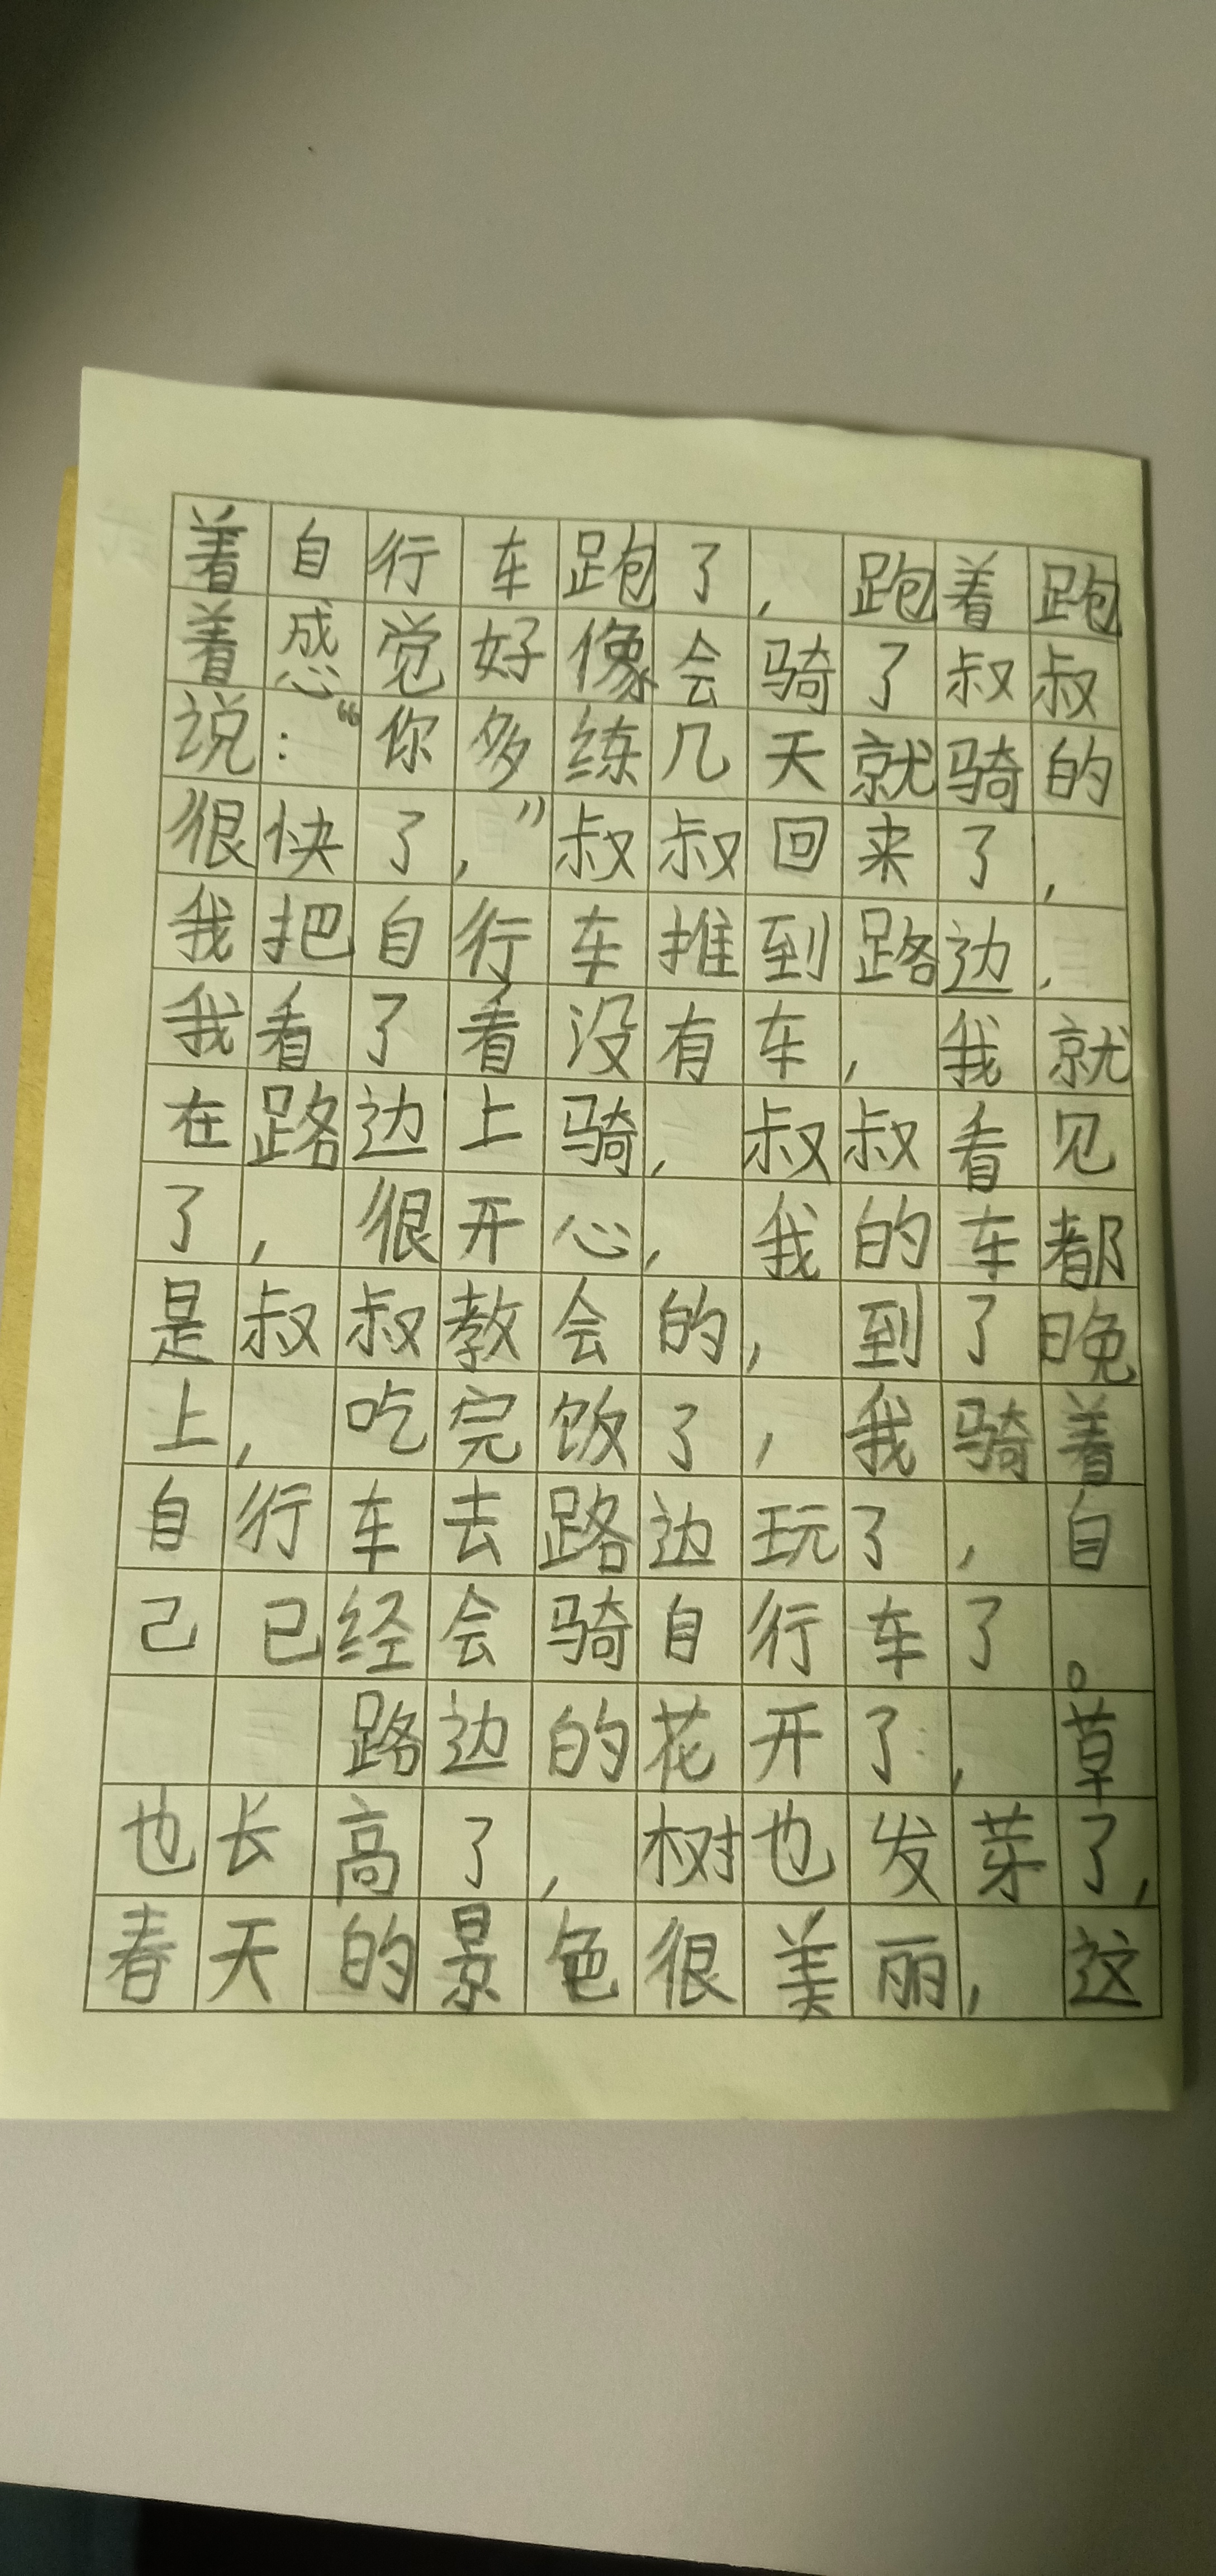 着自行车跑了，跑着跑
着感觉好像会骑了叔叔
说：“你多练几天就骑的
很快了，”叔叔回来了，
我把自行车推到路边，
我看了看没有车，我就
在路边上骑，叔叔看见
了，很开心，我的车都
是叔叔教会的，到了晚
上，吃完饭了，我骑着
自行车去路边玩了，自
己已经会骑自行车了。
路边的花开了，草
也长高了，树也发芽了，
春天的景色很美丽，这